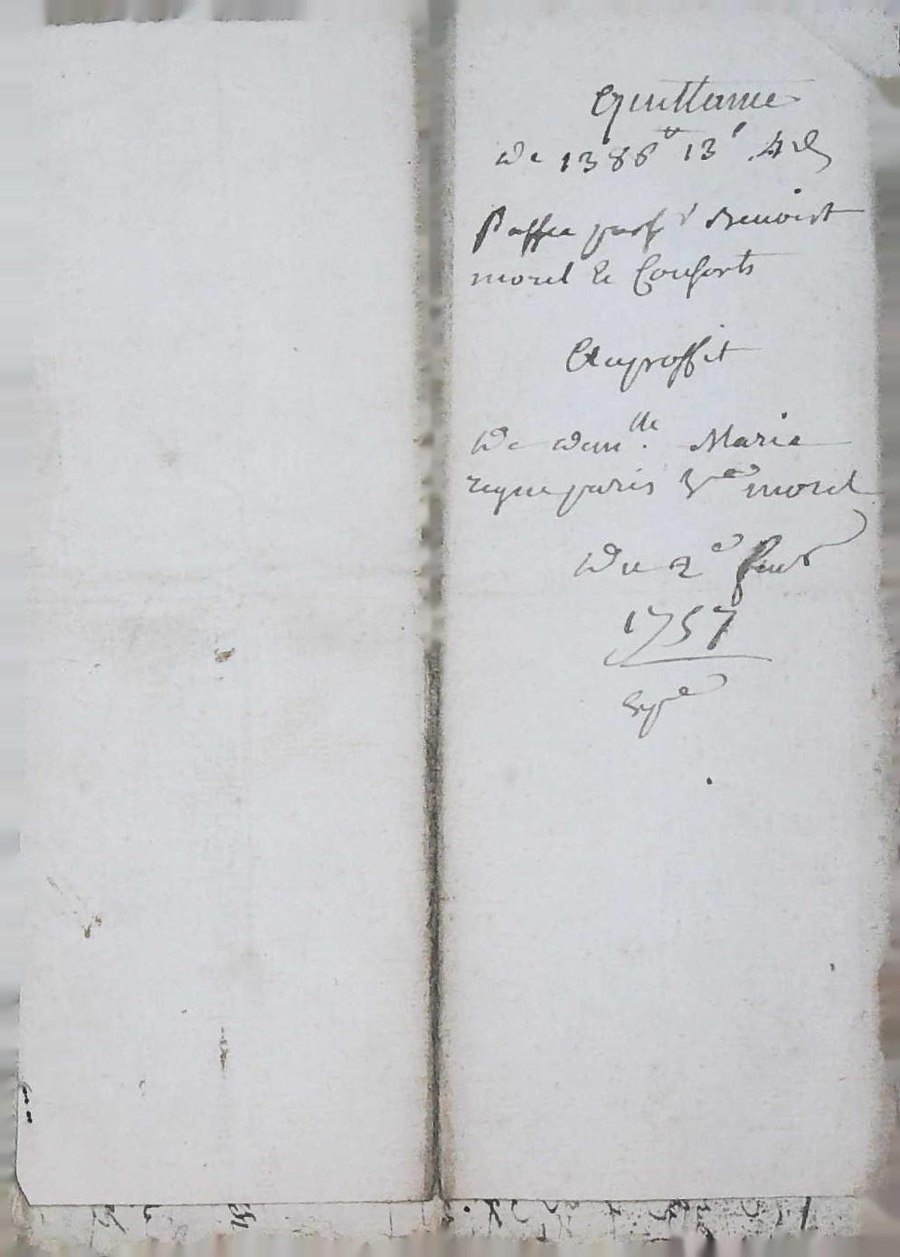 Quittance
de 1386 ₶ 13 ˢ 4 d
Passée par s.r Benoist
morel & Consorts
Au proffit
De dem.lle Marie
reyne paris v.e morel
Du 2.e fevr
1757
Exp.e